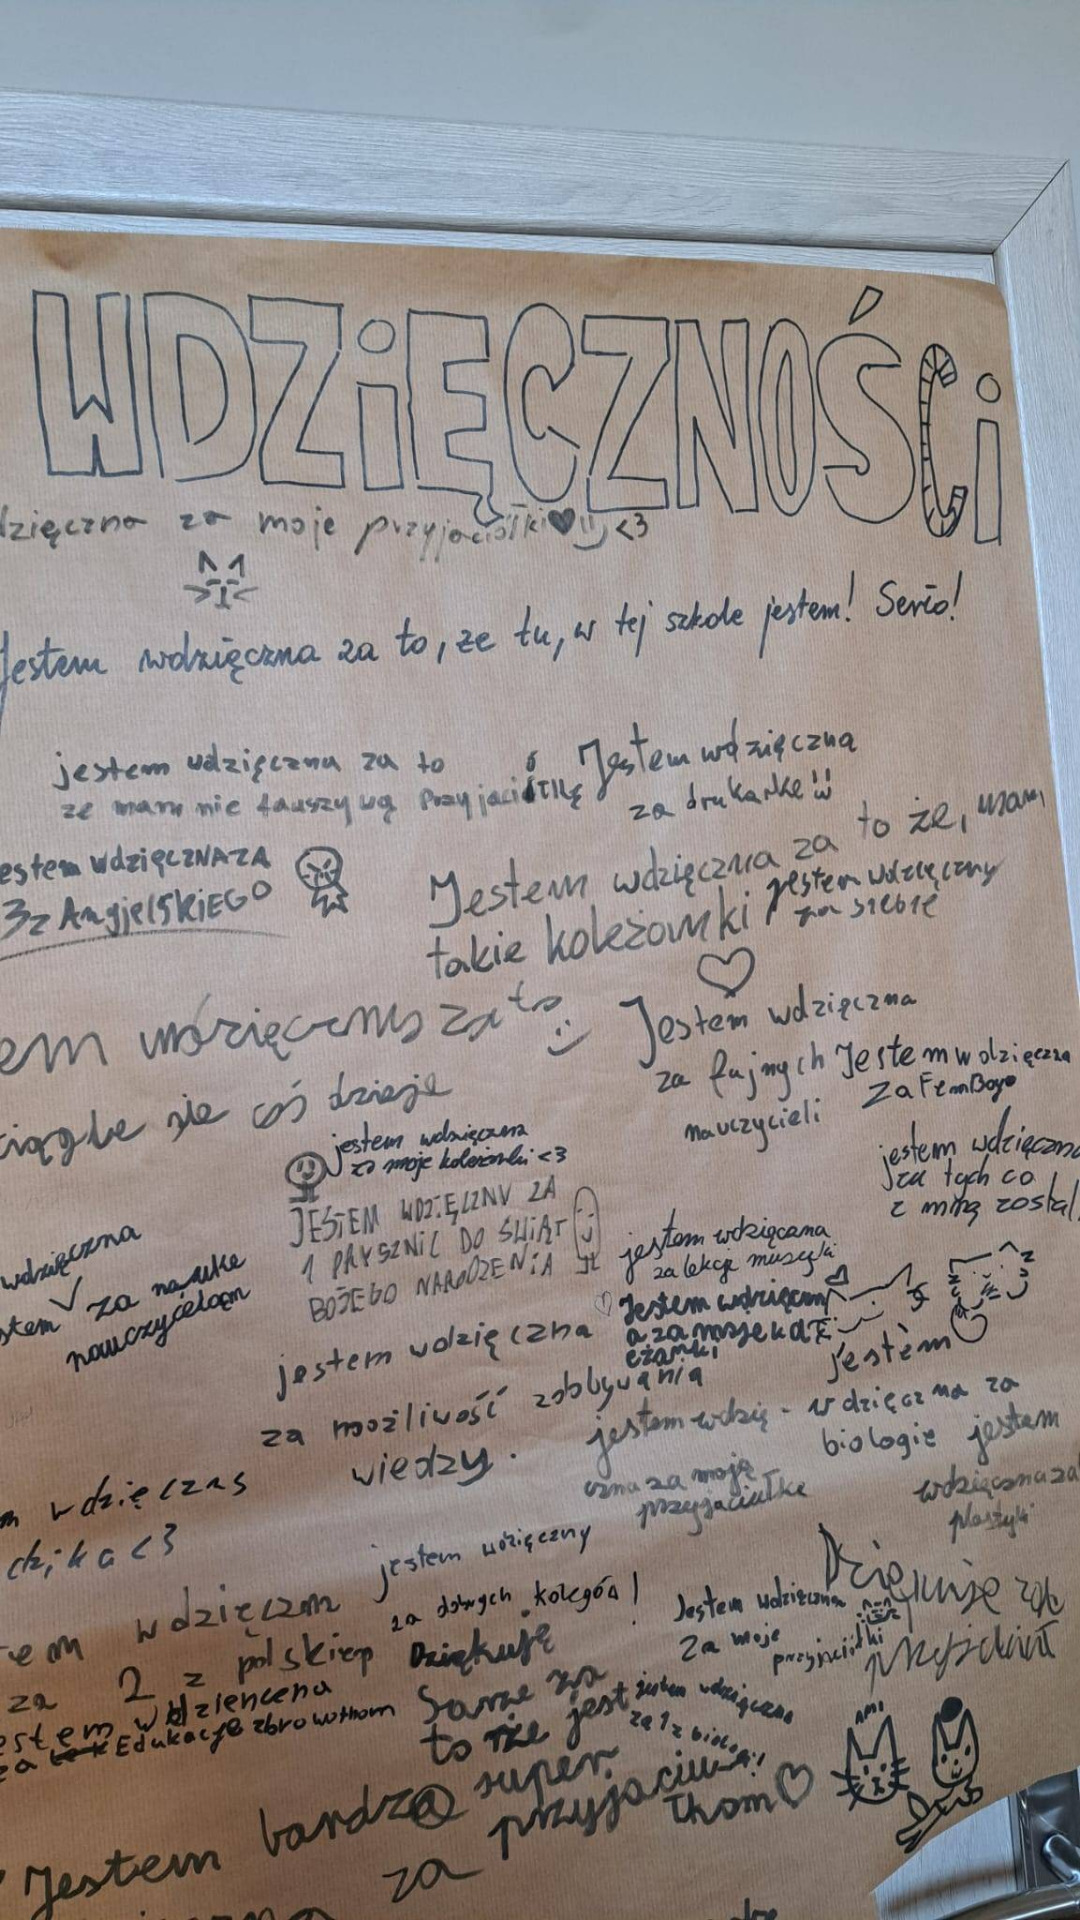 WDZIĘCZNOŚCI
dzięczna za moje przyjaciółki <3
Jestem wdzięczna za to, ze tu, w tej szkole jestem! Serio!
jestem wdzięczna za to
ze mam nie
Jestem wdzięczna
za drukarkę
estem WDZIĘCZNA ZA
3 z AngjelSKiEGO
Jestem wdzięczna za to że, mam
takie koleżowki
jestem wdzięczny
za siebie
em wdzięczny za to
ciągle sie coś dzieje
Jestem wdzięczna
za fajnych
nauczycieli
Jestem wdzięczna
za FemBoye
jestem wdzięczna
za moje koleżanki <3
jestem wdzięczna
za tych co
z mną zostali
JESTEM WDZIĘCZNY ZA
1 PRYSZNIC DO ŚWIĄT
BOŻEGO NARODZENIA
jestem wdzięczna
za lekcje muzyki
wdzięczna
stem za naukę
nauczycielom
Jestem wdzięczn
a za moje kole
żanki
jestem wdzięczna
za możliwość zdobywania
wiedzy.
jestem
wdzięczna za
biologie
jestem wdzię-
czna za moją
przyjaciułke
jestem
wdzięczna za
plastyki
m wdzięczna
dzika <3
jestem wdzięczny
za dobrych kolegów!
em wdzięczm
za 2 z polskiep
estem wdziencena
za Edukacje zbrowothom
Dziękuję
Sarze za
to że jest
super
przyjaciu
łkom
Jestem wdzięczna
Za moje
przyjaciółki
Dziękuję za
przyjaciół
jestem wdzięczna
za 1 z biologi!
Jestem bardzo
za